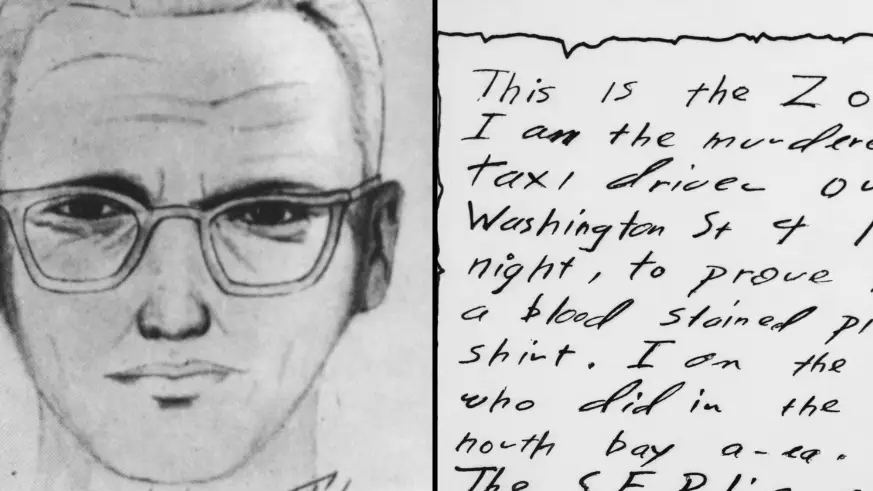 This is the Zo
I am the murdere
taxi driver ov
Washington St &
night, to prove
a blood stained pi
shirt. I am the
who did in the
north bay area.
The S.F. Poli